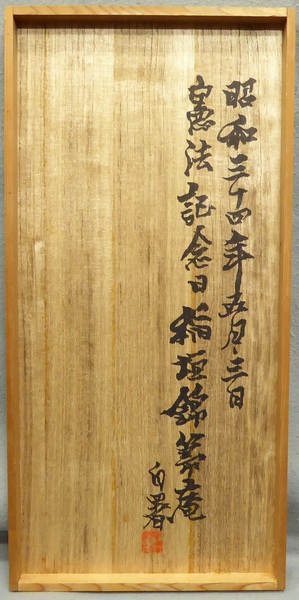 昭和三十四年五月三日
憲法記念日稲垣錦荘庵
自署